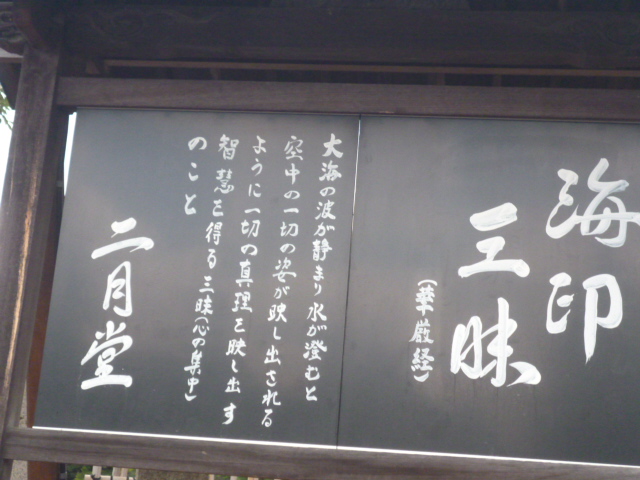 海印
三昧
(華厳経)
大海の波が静まり水が澄むと
空中の一切の姿が映し出される
ように一切の真理を映し出す
智慧を得る三昧(心の集中)
のこと
二月堂